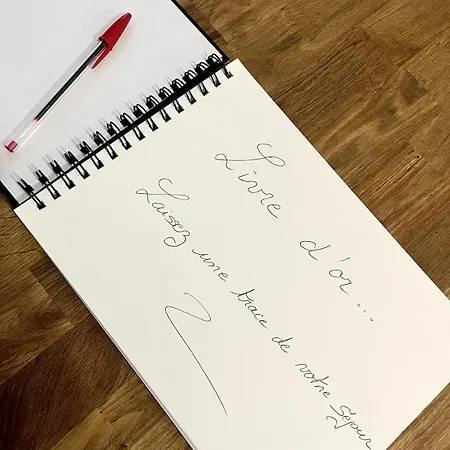 Livre d'or...
Laissez une trace de votre séjour